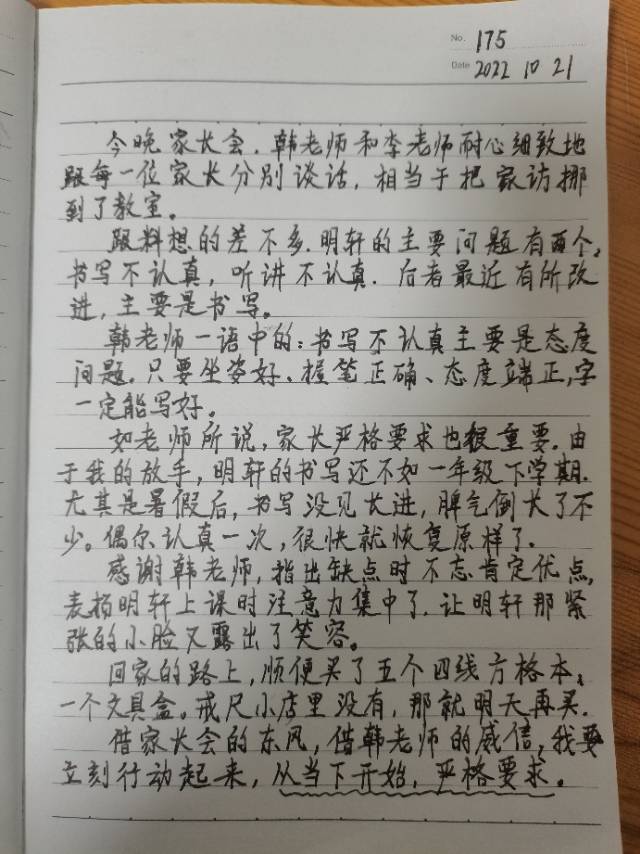 No. 175
Date 2022 10 21
今晚家长会,韩老师和李老师耐心细致地
跟每一位家长分别谈话,相当于把家访挪
到了教室。
跟料想的差不多,明轩的主要问题有两个,
书写不认真,听讲不认真.后者最近有所改
进,主要是书写。
韩老师一语中的:书写不认真主要是态度
问题.只要坐姿好、握笔正确、态度端正,字
一定能写好。
如老师所说,家长严格要求也很重要.由
于我的放手,明轩的书写还不如一年级下学期.
尤其是暑假后,书写没见长进,脾气倒长了不
少。偶尔认真一次,很快就恢复原样了.
感谢韩老师,指出缺点时不忘肯定优点,
表扬明轩上课时注意力集中了.让明轩那紧
张的小脸又露出了笑容。
回家的路上,顺便买了五个四线方格本、
一个文具盒。戒尺小店里没有,那就明天再买.
借家长会的东风,借韩老师的威信,我要
立刻行动起来,从当下开始,严格要求。